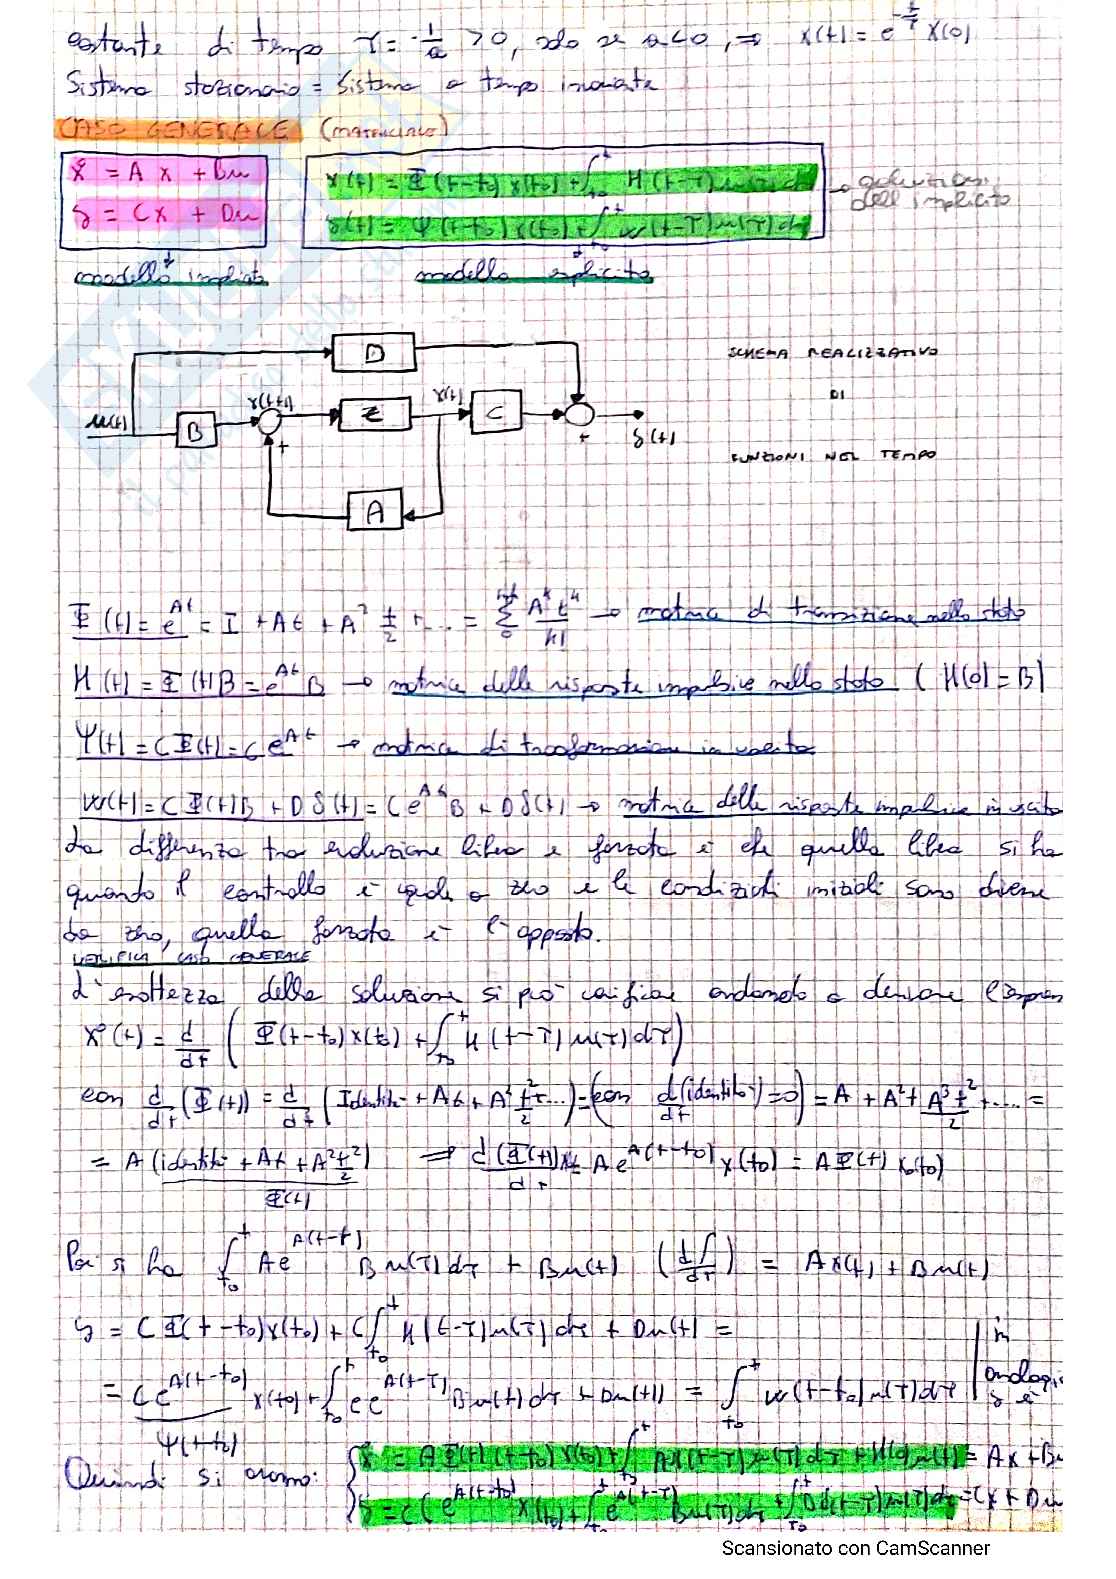 costante di tempo τ = -1/a > 0, solo se a<0, ⇒ x(t) = e^{-t/τ} x(0)
Sistema stazionario = Sistema a tempo invariante
CASO GENERALE (matriciale)
ẋ = A x + Bu
y = Cx + Du
x(t) = Φ(t-t₀) x(t₀) + ∫_{t₀}^{t} H(t-τ) u(τ) dτ
y(t) = Ψ(t-t₀) x(t₀) + ∫_{t₀}^{t} W(t-τ) u(τ) dτ
→ soluzioni
dell'implicito
modello implicito
modello esplicito
D
SCHEMA REALIZZATIVO
DI
FUNZIONI NEL TEMPO
u(t)
B
x(t+1)
+
z
x(t)
C
+
y(t)
A
Φ(t) = e^{At} = I + At + A² t/2 + ... = Σ_0 A^k t^k / k! → matrice di transizione nello stato
H(t) = Φ(t)B = e^{At} B → matrice delle risposte impulsive nello stato (H(0) = B)
Ψ(t) = CΦ(t) = C e^{At} → matrice di trasformazione in uscita
W(t) = CΦ(t)B + Dδ(t) = C e^{At} B + Dδ(t) → matrice delle risposte impulsive in uscita
La differenza tra evoluzione libera e forzata è che quella libera si ha
quando il controllo è uguale a zero e le condizioni iniziali sono diverse
da zero, quella forzata è l'opposto.
VERIFICA CASO GENERALE
L'esattezza della soluzione si può verificare andando a derivare l'espres
x°(t) = d/dt ( Φ(t-t₀) x(t₀) + ∫_{t₀}^{t} H(t-τ) u(τ) dτ )
con d/dt (Φ(t)) = d/dt (Identità + At + A² t²/2 + ...) = (con d(identità)/dt = 0) = A + A²t + A³t²/2 + .... =
= A (identità + At + A²t²/2) ⇒ d(Φ(t))x/dt = A e^{A(t-t₀)} x(t₀) = AΦ(t) x(t₀)
Φ(t)
Poi si ha ∫_{t₀}^{t} A e^{A(t-τ)} Bu(τ) dτ + Bu(t) (d∫/dt) = Ax(t) + Bu(t)
y = CΦ(t-t₀)x(t₀) + C∫_{t₀}^{t} H(t-τ)u(τ)dτ + Du(t) =
= C e^{A(t-t₀)} x(t₀) + ∫_{t₀}^{t} C e^{A(t-τ)} Bu(t)dτ + Du(t) = ∫_{t₀}^{t} W(t-t₀)u(τ)dτ
in
analogia
y è
Ψ(t-t₀)
Quindi si avranno:
ẋ = AΦ(t)(t-t₀) x(t₀) + ∫_{t₀}^{t} AH(t-τ) u(τ) dτ + H(0)u(t) = Ax + Bu
y = C(e^{A(t-t₀)} x(t₀) + ∫_{t₀}^{t} e^{A(t-τ)} Bu(τ)dτ + ∫_{t₀}^{t} Dδ(t-τ)u(τ)dτ = Cx + Du
Scansionato con CamScanner